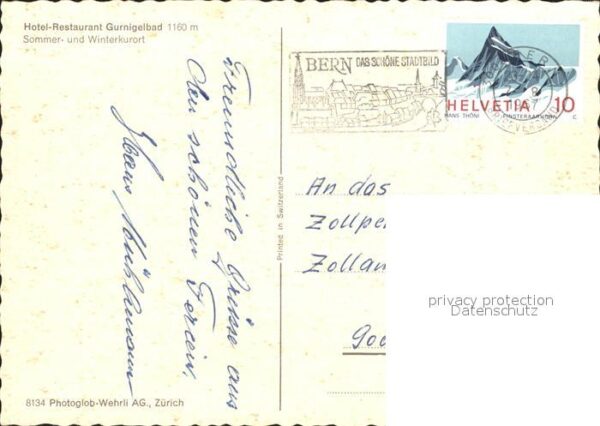 Hotel-Restaurant Gurnigelbad 1160 m
Sommer- und Winterkurort
Freundliche Grüsse aus
den schönen Ferien.
Hans
BERN DAS SCHÖNE STADTBILD
HELVETIA 10
HANS THÖNI FINSTERAARHORN C
Printed in Switzerland
An das
Zollpe
Zollam
Goe
privacy protection
Datenschutz
8134 Photoglob-Wehrli AG., Zürich